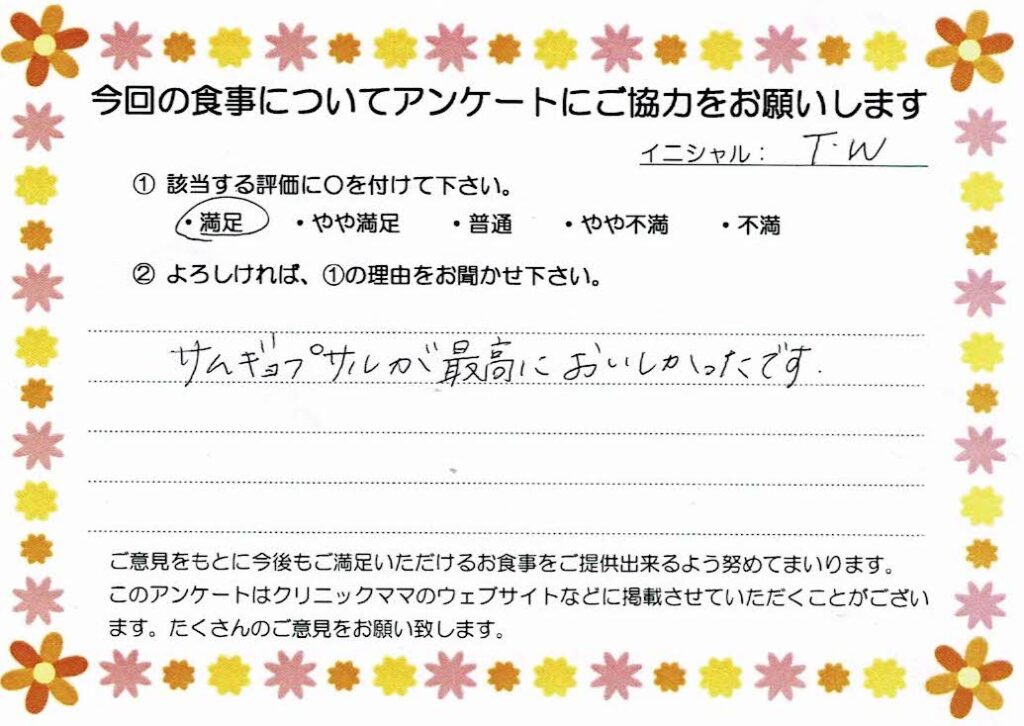 今回の食事についてアンケートにご協力をお願いします
イニシャル： T.W
① 該当する評価に〇を付けて下さい。
・満足 ・やや満足 ・普通 ・やや不満 ・不満
② よろしければ、①の理由をお聞かせ下さい。
サムギョプサルが最高においしかったです.
ご意見をもとに今後もご満足いただけるお食事をご提供出来るよう努めてまいります。
このアンケートはクリニックママのウェブサイトなどに掲載させていただくことがござい
ます。たくさんのご意見をお願い致します。